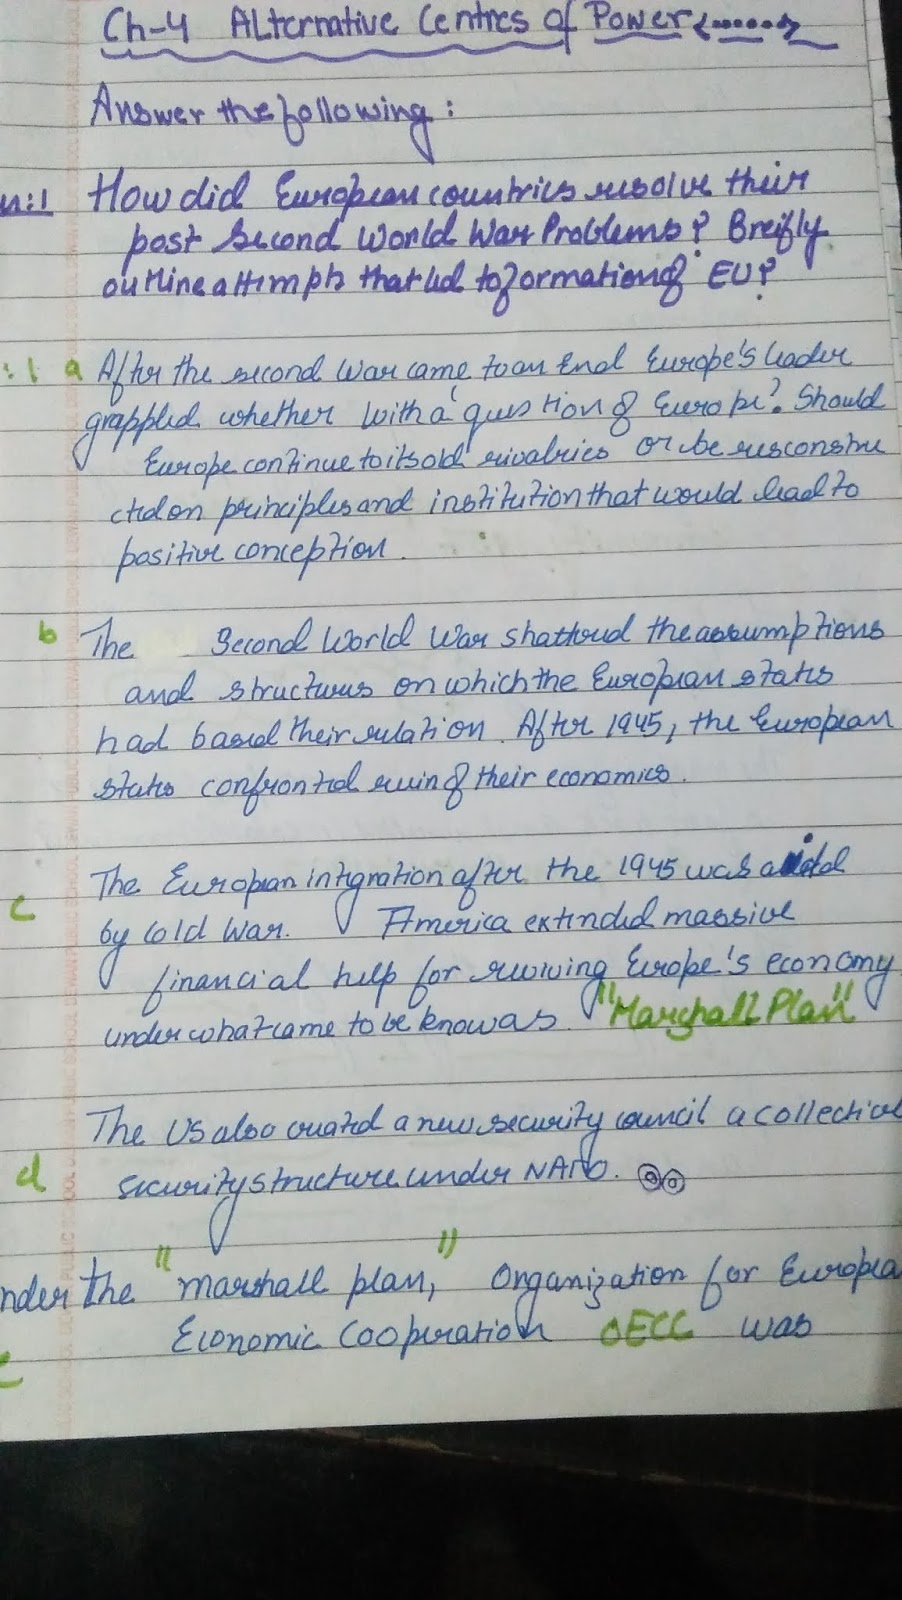 Ch-4 Alternative Centres of Power
Answer the following:
n:1 How did European countries resolve their
post Second World War Problems? Breifly
outline attempts that led to formation of EU?
:1 a After the second War came to an End Europe's leader
grappled whether with a question of Europe?. Should
Europe continue to its old rivalries or be reconstru
cted on principles and institution that would lead to
positive conception.
b The Second World War shattered the assumptions
and structures on which the European states
had based their relation. After 1945, the European
states confronted ruin of their economies.
c The European integration after the 1945 was aided
by Cold War. America extended massive
financial help for reviving Europe's economy
under what came to be know as "Marshall Plan"
d The US also created a new security council a collective
security structure under NATO.
nder the "marshall plan," Organization for Europea
Economic Cooperation OECC was